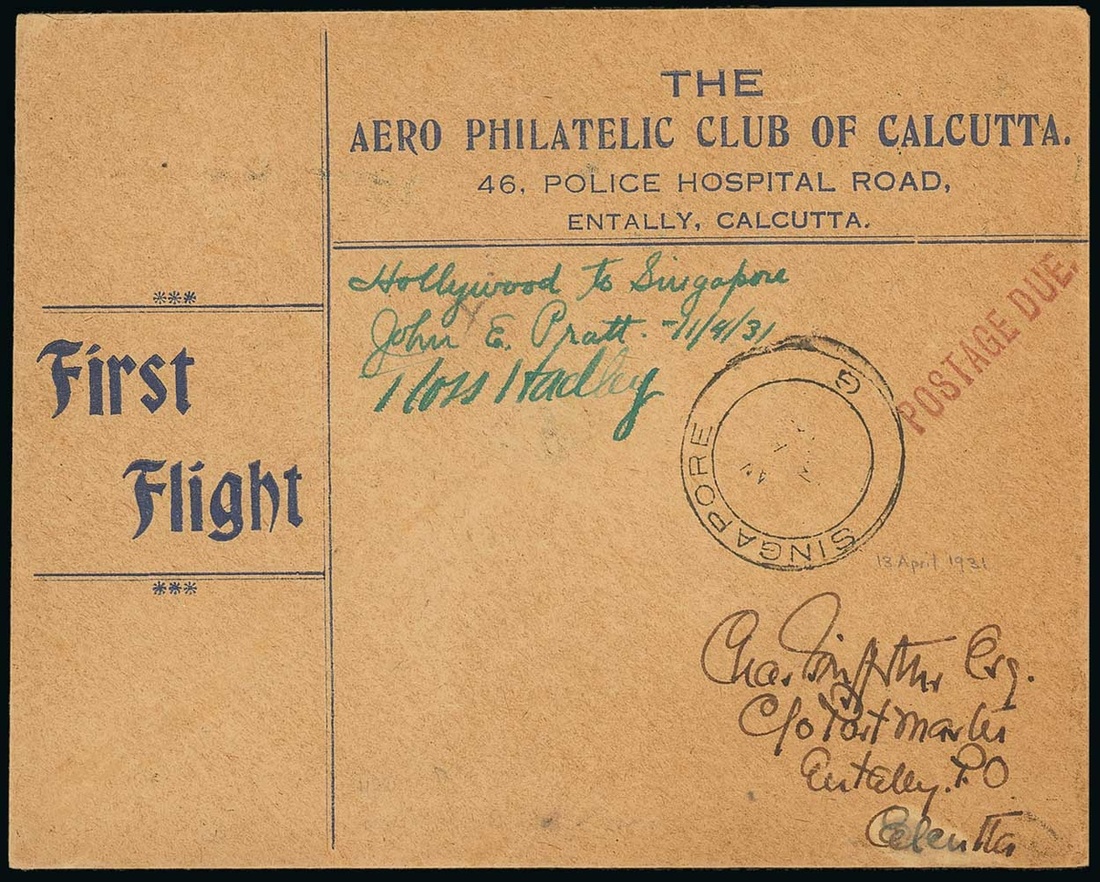 THE
AERO PHILATELIC CLUB OF CALCUTTA.
46, POLICE HOSPITAL ROAD,
ENTALLY, CALCUTTA.
***
First
Flight
***
Hollywood to Singapore
John E. Pratt - 11/4/31
Ross Hadley
POSTAGE DUE.
SINGAPORE
G
13 April 1931
Chas. Griffiths Esq.
C/o Post Master
Entally. P.O
Calcutta